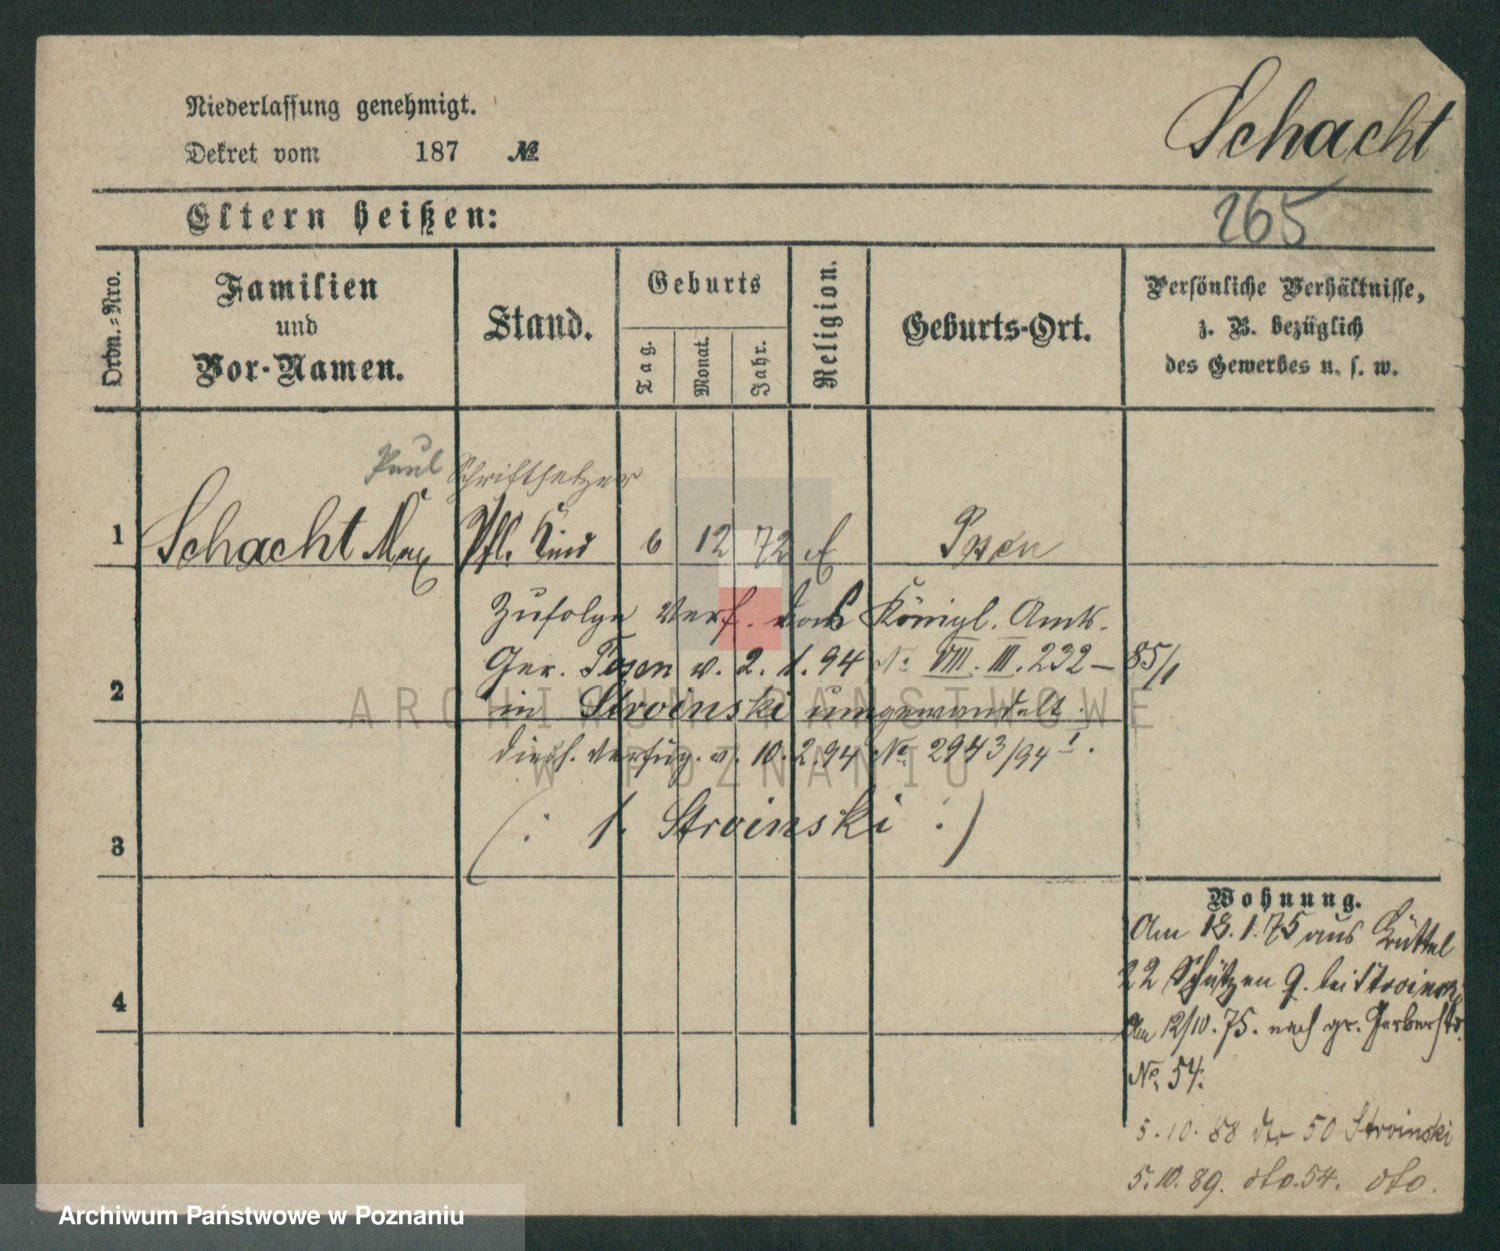 Niederlassung genehmigt.
Schacht
Dekret vom 187 №
Eltern heißen:
265
Ordn.-Nro.
Familien
und
Vor-Namen.
Stand.
Geburts
Tag.
Monat.
Jahr.
Religion.
Geburts-Ort.
Persönliche Verhältnisse,
z. B. bezüglich
des Gewerbes u. s. w.
Paul Schriftsetzer
1 Schacht Max Pfl. Kind 6 12 72 Posen
Zufolge Verf. des Königl. Amts-
Ger. Posen v. 2. 1. 94 № VIII. III. 232 – 85/1
2 in Stroinski umgewandelt.
diess. Verfüg. v. 10. 2. 94 № 2943/94 I.
3 (: s. Stroinski :)
4
Wohnung.
Am 18. 1. 75 aus
22 Schützen 9. bei Stroinski
Am 12/10. 75. nach gr. Gerberstr.
№ 54.
5. 10. 88 dto 50 Stroinski
5. 10. 89. dto. 54. dto.
ARCHIWUM PAŃSTWOWE
W POZNANIU
Archiwum Państwowe w Poznaniu